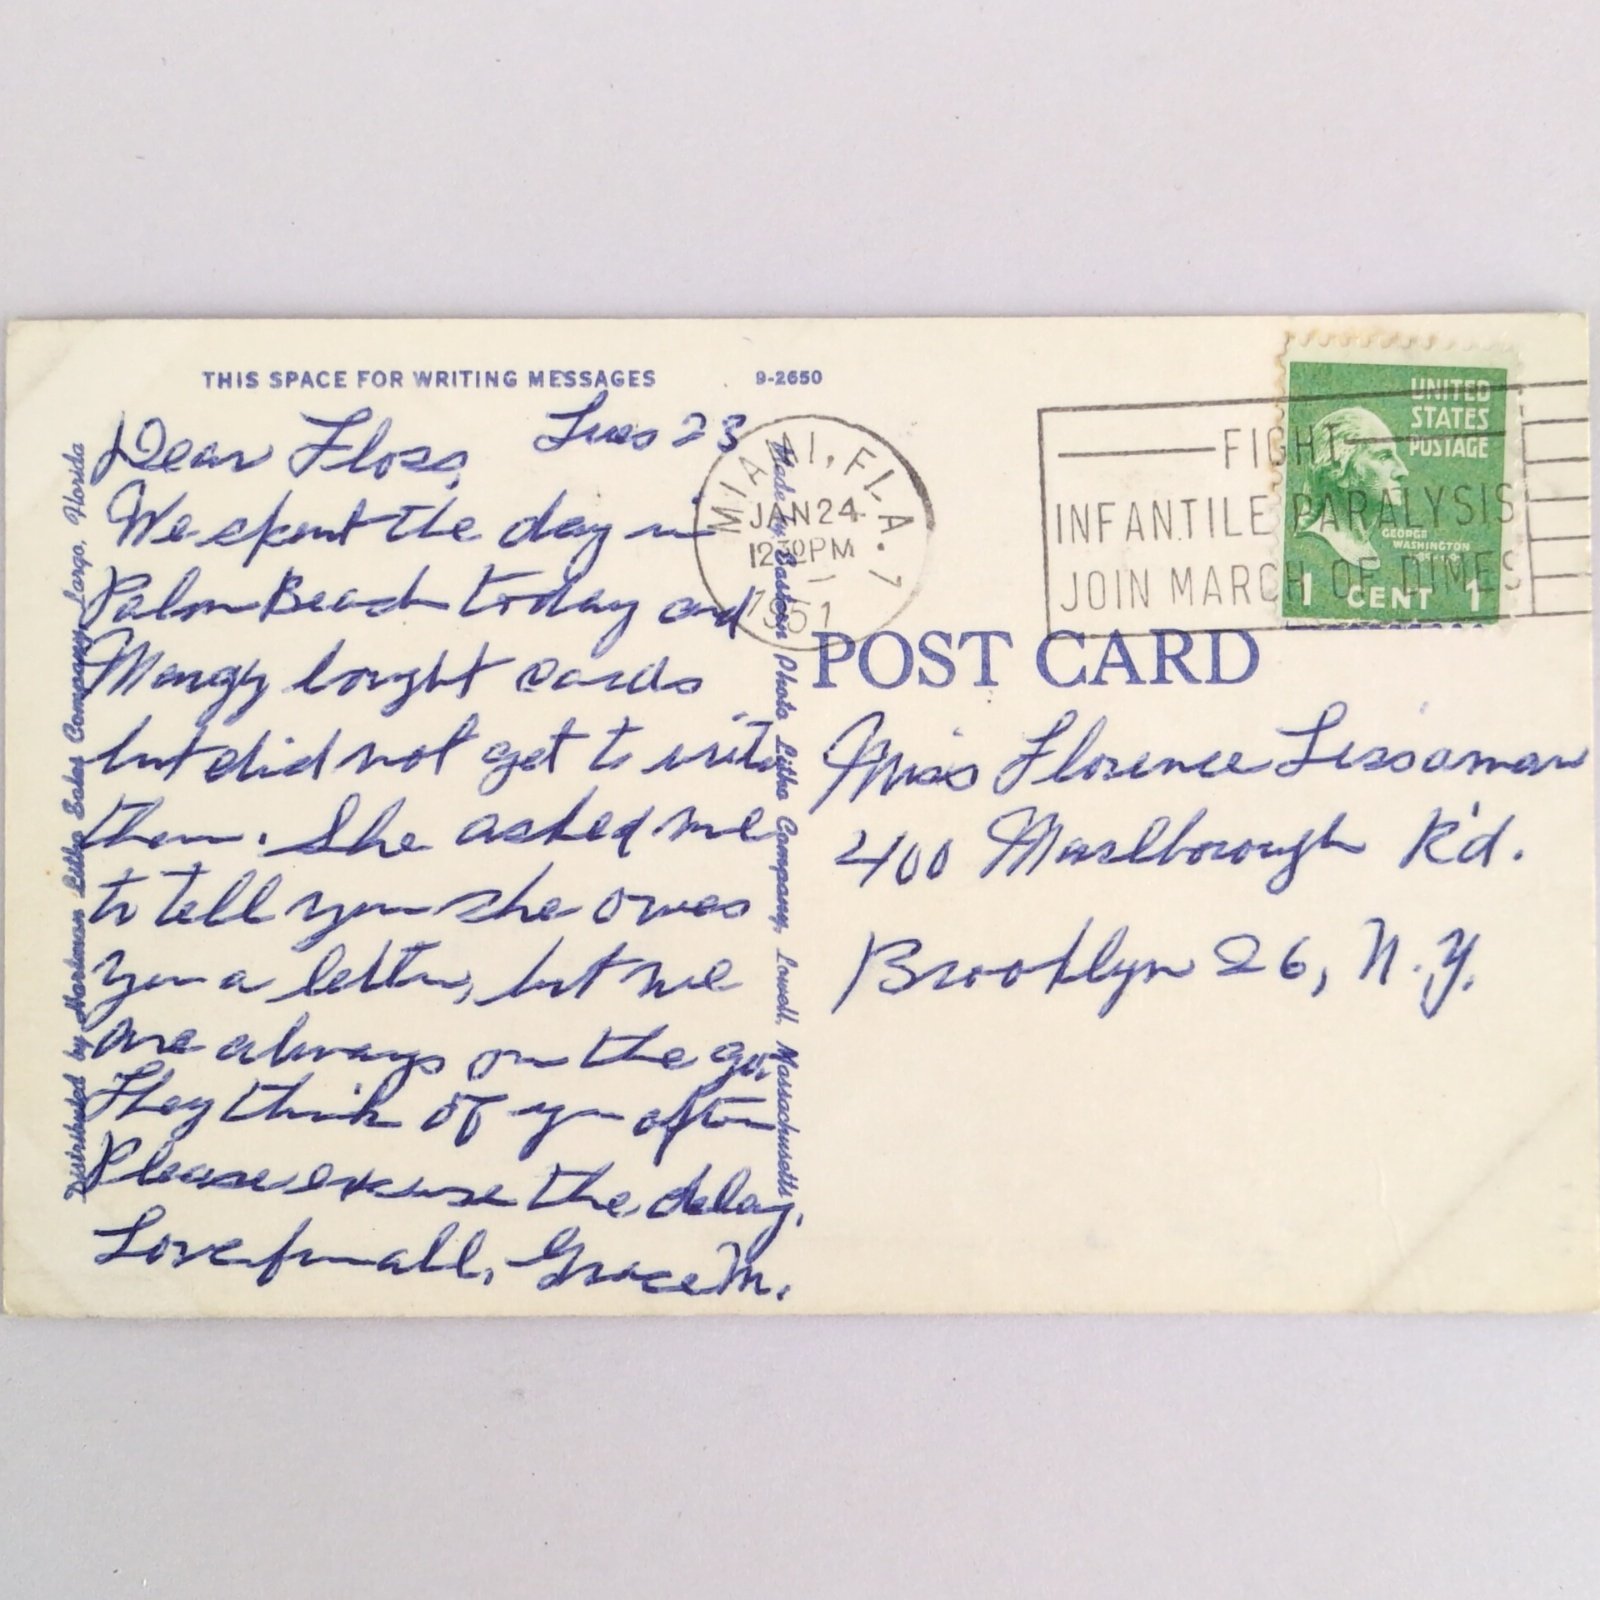 THIS SPACE FOR WRITING MESSAGES
9-2650
Dear Floss, Tues 23
We spent the day in
Palm Beach today and
Margy bought cards
but did not get to write
them. She asked me
to tell you she owes
you a letter, but we
are always on the go.
They think of you often
Please excuse the delay.
Love from all, Grace M.
Distributed by Hartman Litho Sales Company, Largo, Florida
Made by Eastern Photo Litho Company, Lowell, Massachusetts
MIAMI, FLA. 7
JAN 24
12 30 PM
1951
FIGHT
INFANTILE PARALYSIS
JOIN MARCH OF DIMES
UNITED
STATES
POSTAGE
GEORGE
WASHINGTON
1 CENT 1
POST CARD
Miss Florence Lissaman
400 Marlborough R'd.
Brooklyn 26, N.Y.